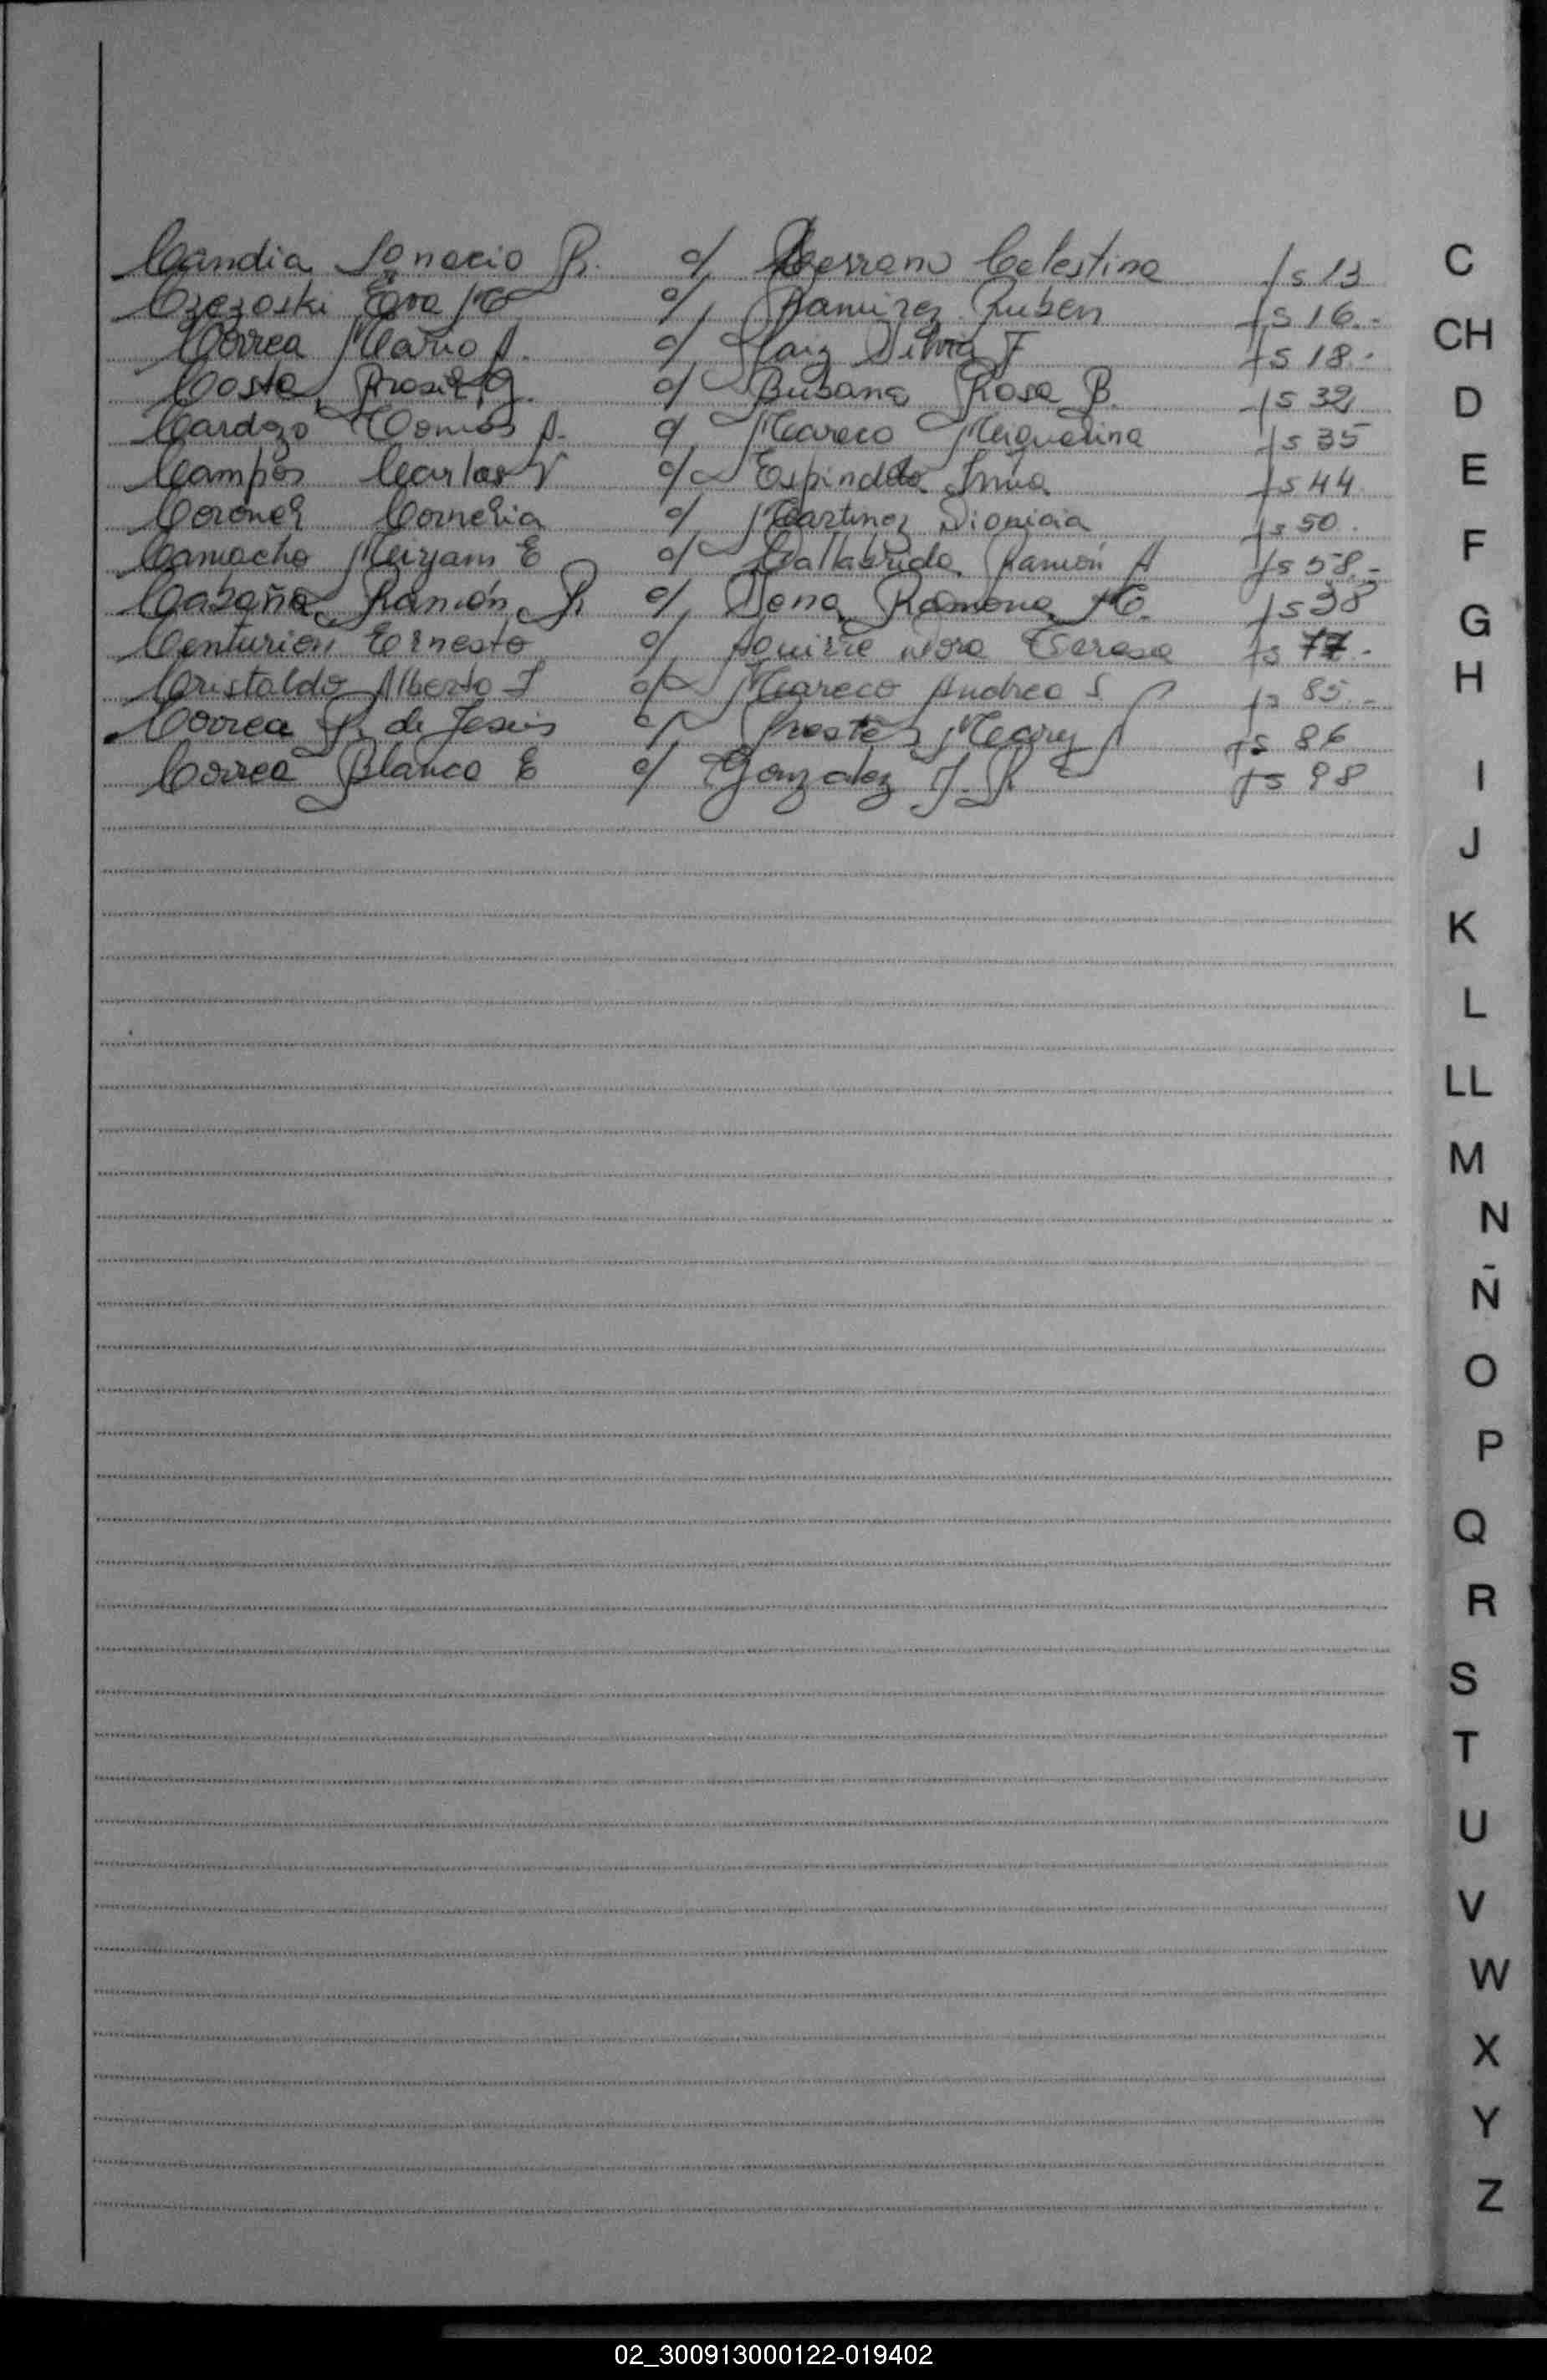 Candia Ignacio R. c/ Serrano Celestina fs 13
Czezoski Eva M c/ Ramirez Ruben fs 16.-
Correa Mario A. c/ Silvia F fs 18.-
Costa, G. c/ Rosa B. fs 32
Cardozo Tomás A. c/ Mareco Miguelina fs 35
Campos Carlos V c/ Espindola Irma fs 44
Coronel Cornelia c/ Martinez Dionicia fs 50.
Camacho Miryam E c/ Dallabrida Ramón A fs 58.-
Cabaña Ramón R c/ Ramona M. fs 38
Centurion Ernesto c/ Aguirre Dora Teresa fs 77.-
Cristaldo Alberto J c/ Mareco Andrea S fs 85.-
Correa R. de Jesús c/ Prestes Mary A fs 86
Correa Blanca E c/ Gonzalez J. R fs 98
C
CH
D
E
F
G
H
I
J
K
L
LL
M
N
Ñ
O
P
Q
R
S
T
U
V
W
X
Y
Z
02_300913000122-019402